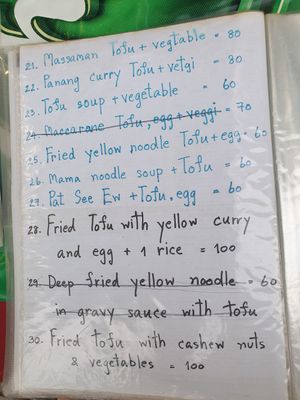 21. Massaman Tofu + vegtable = 80
22. Panang curry Tofu + vetgi = 80
23. Tofu soup + vegetable = 60
24. Maccarone Tofu, egg + veggi = 70
25. Fried yellow noodle Tofu + egg = 60
26. Mama noodle soup + Tofu = 60
27. Pat See Ew + Tofu, egg = 60
28. Fried Tofu with yellow curry
and egg + 1 rice = 100
29. Deep fried yellow noodle = 60
in gravy sauce with tofu
30. Fried tofu with cashew nuts
& vegetables = 100